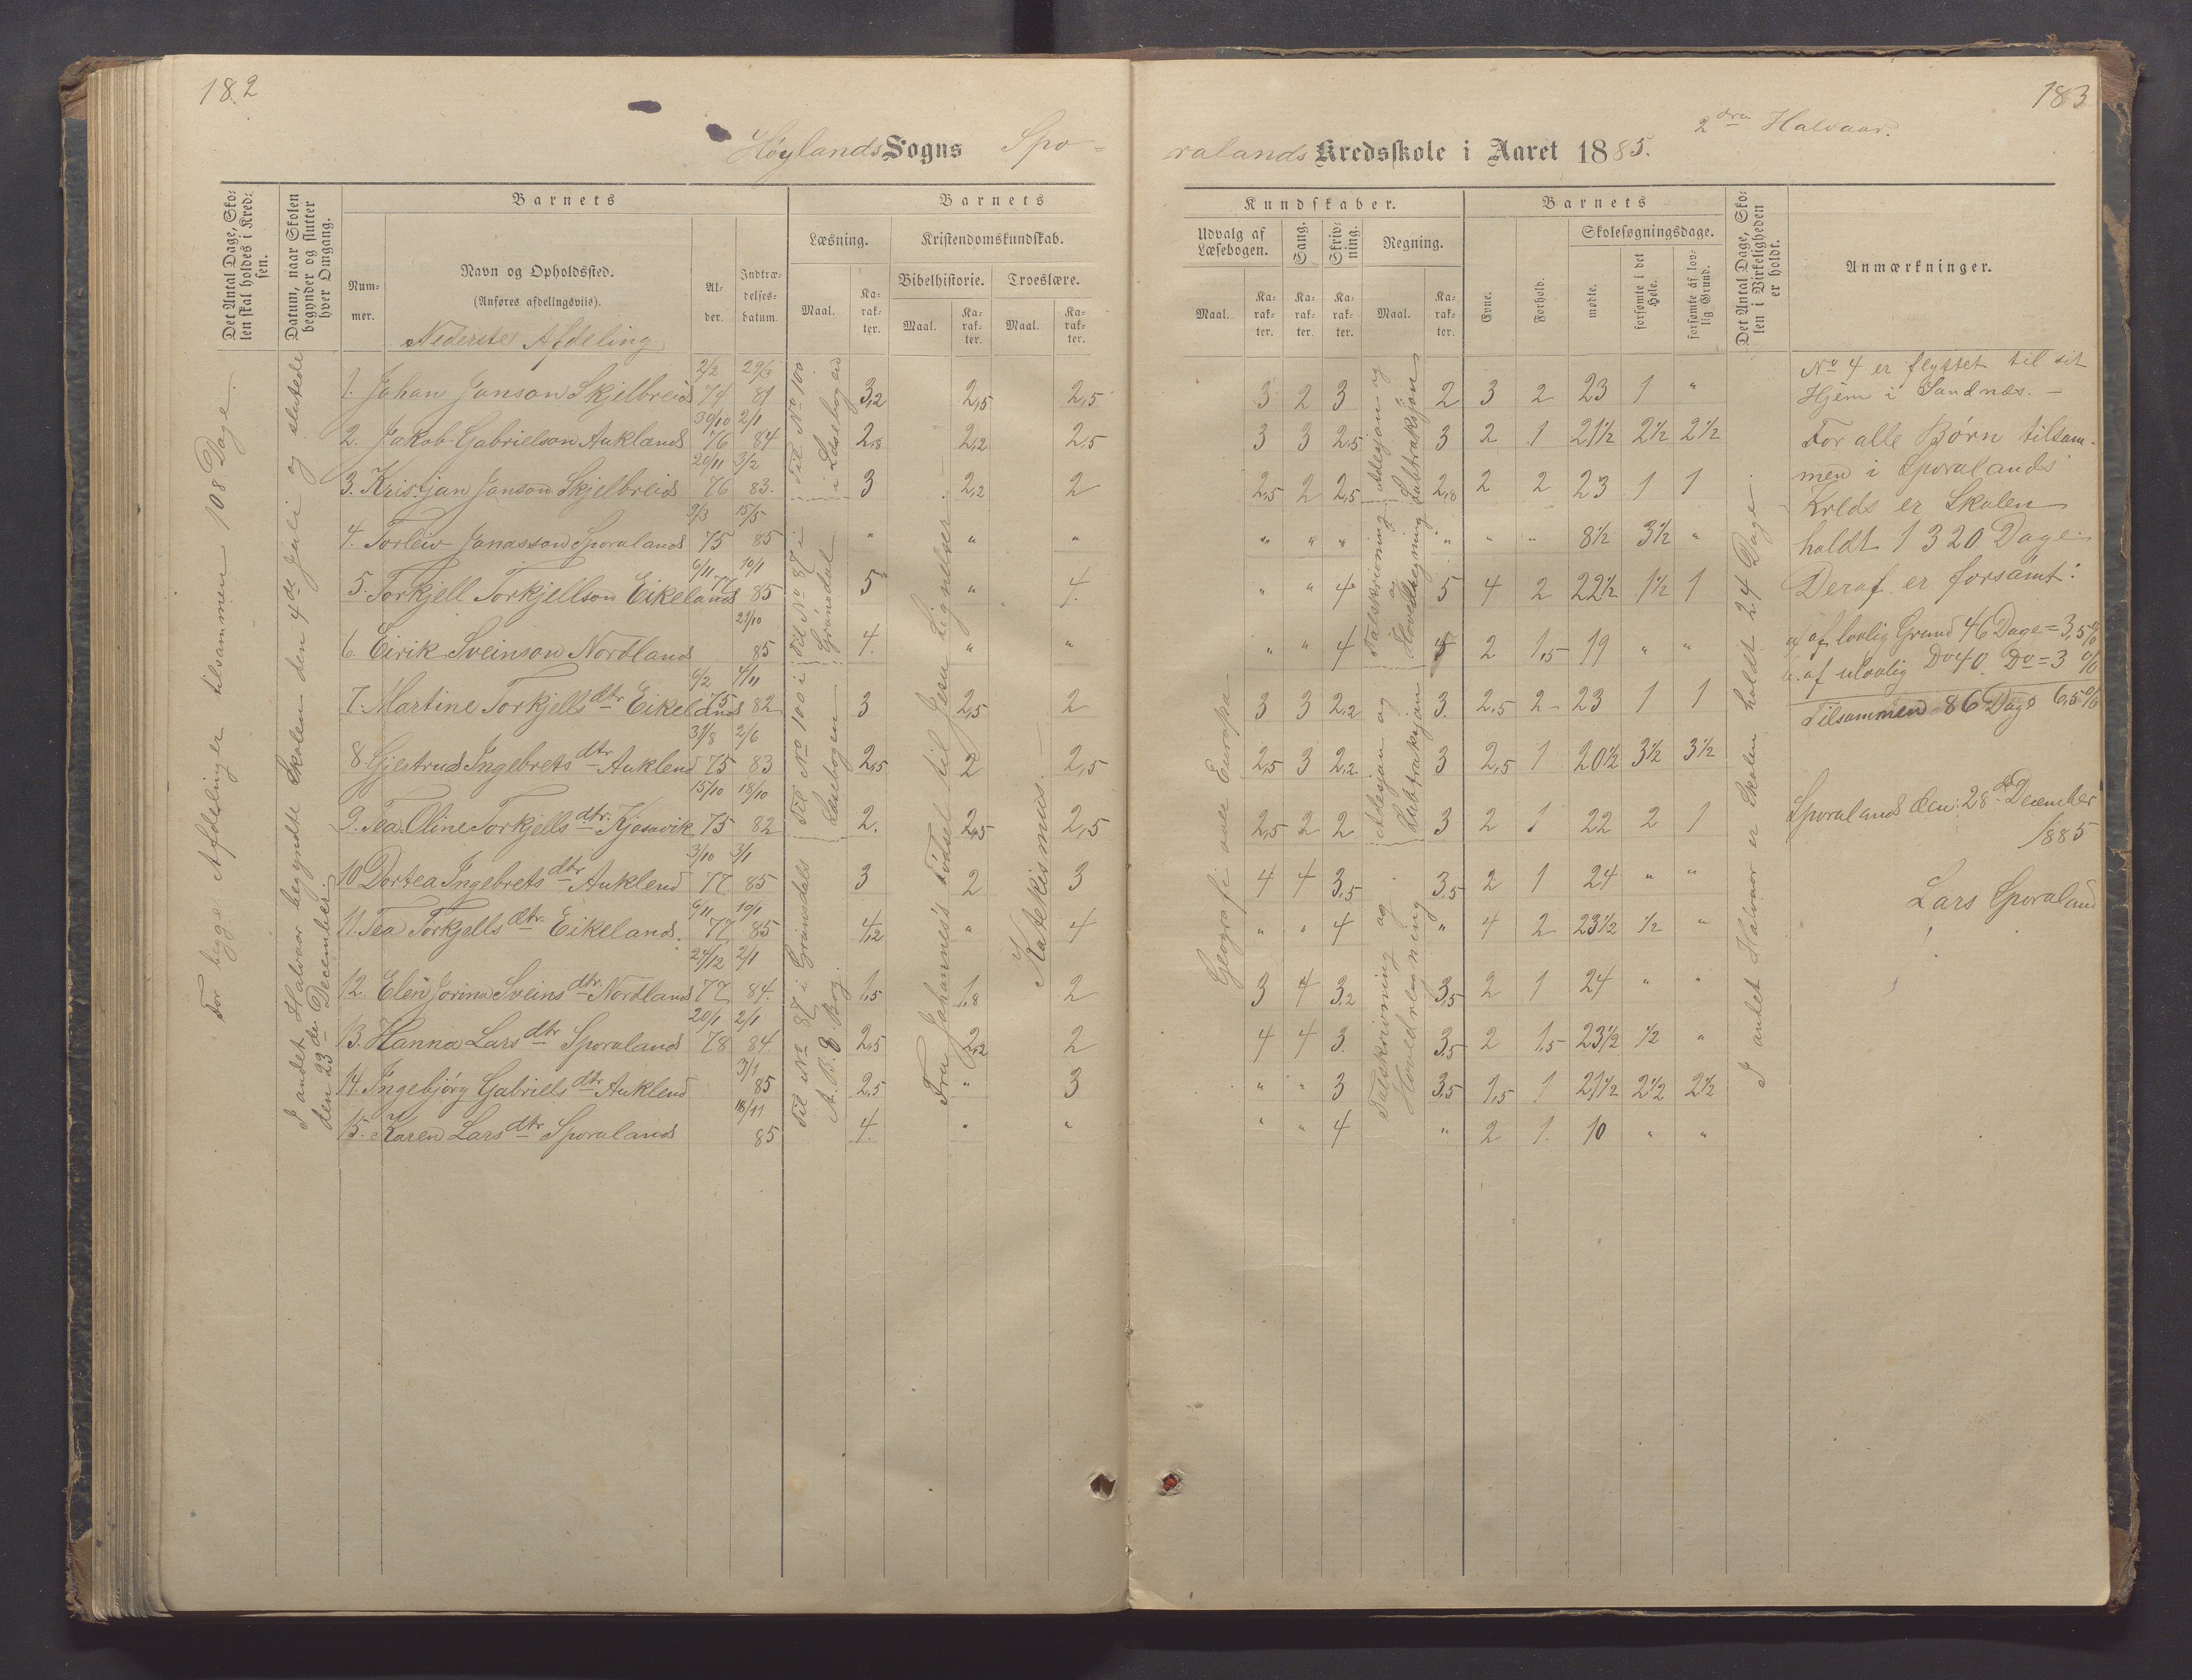 182
183
Høylands Sogns Spo-
2dra Halvaar.
ralands Kredsskole i Aaret 1885.
Det Antal Dage, Sko-
len skal holdes i Kred-
sen.
Datum, naar Skolen
begynder og slutter
hver Omgang.
Barnets
Num-
mer.
Navn og Opholdssted.
(Anføres afdelingsviis).
Al-
der.
Indtræ-
delses-
datum.
Barnets
Læsning.
Maal.
Ka-
rak-
ter.
Kristendomskundskab.
Bibelhistorie.
Maal.
Ka-
rak-
ter.
Troeslære.
Maal.
Ka-
rak-
ter.
Kundskaber.
Udvalg af
Læsebogen.
Maal.
Ka-
rak-
ter.
Sang.
Ka-
rak-
ter.
Skriv-
ning.
Ka-
rak-
ter.
Regning.
Maal.
Ka-
rak-
ter.
Barnets
Evne.
Forhold.
Skolesøgningsdage.
mødte.
forsømte i det
Hele.
forsømte af lov-
lig Grund.
Det Antal Dage, Sko-
len i Virkeligheden
er holdt.
Anmærkninger.
Nederste Afdeling
For begge Afdelinger tilsammen 108 Dage.
I andet Halvaar begyndte Skolen den 4de Juli og sluttede
den 23de December.
2/2 29/3
1. Johan Janson Skjelbreid 74 81 3,2 2,5 2,5 3 2 3 2 3 2 23 1 "
30/10 2/1
2. Jakob Gabrielson Aukland 76 84 2,8 2,2 2,5 3 3 2,5 3 2 1 21½ 2½ 2½
20/11 3/2
3. Kristjan Janson Skjelbreid 76 83. 3 2,2 2 2,5 2 2,5 2,8 2 2 23 1 1
9/3 15/5
4. Torleiv Jonasson Sporaland 75 85 " " " " " " " " " 8½ 3½ "
6/11 10/1
5. Torkjell Torkjellson Eikeland 77 85 5 " 4. " " 4 5 4 2 22½ 1½ 1
29/10
6. Eirik Sveinson Nordland 85 4. " " " " 4 5 2 1,5 19 " "
6/2 4/11
7. Martine Torkjellsdtr Eikeland 75 82 3 2,5 2 3 3 2,2 3. 2,5 2 23 1 1
31/8 2/6
8 Gjertrud Ingebretsdtr Auklend 75 83 2,5 2 2,5 2,5 3 2,2 3 2,5 1 20½ 3½ 3½
15/10 18/10
9. Tea Oline Torkjellsdtr. Kjosavik 75 82 2. 2,5 2,5 2,5 2 2 3 2 1 22 2 1
3/10 3/1
10 Dortea Ingebretsdtr Auklend 77 85 3 2 3 4 4 3,5 3,5 2 1 24 " "
6/11 10/1
11. Tea Torkjellsdtr. Eikeland. 77 85 4,2 " 4 " " 4 " 4 2 23½ ½ "
24/12 2/1
12. Elen Jorina Sveinsdtr. Nordland 77 84. 1,5 1,8 2 3 4 3,2 3,5 2 1 24 " "
20/1 2/1
13. Hanna Larsdtr Sporaland 78 84. 2,5 2,2 2 4 4 3. 3,5 2 1,5 23½ ½ "
3/1
14. Ingebjørg Gabrielsdtr Auklend 85 2,5 " 3 " " 3 3,5 1,5 1 21½ 2½ 2½
18/11
15. Karen Larsdtr Sporaland 85 4. " " " " 4 " 2 1. 10 " "
Til No 100
i Læsebogen
Til No 87 i
Grønsdal
Til No 100 i
Læsebogen
Til No 87 i Grønsdals
A.B.C. Bog.
Fra Johannes's Fødsel til Jesu Lignelser.
Katekismus.
Geografi over Europa.
Addisjon og
Subtraksjon
Talskrivning
og
Hovedregning
Addisjon og
Subtraksjon
Talskrivning og
Hovedregning
I andet Halvaar er Skolen holdt 24 Dage.
No 4 er flyttet til sit
Hjem i Sandnæs. —
For alle Børn tilsam-
men i Sporalands
Kreds er Skolen
holdt 1320 Dage.
Deraf er forsømt:
a/ af lovlig Grund 46 Dage = 3,5 %
b. af ulovlig Do 40. Do = 3 %
Tilsammen 86 Dage 6,5 %
Sporaland den 28de December
1885
Lars Sporaland